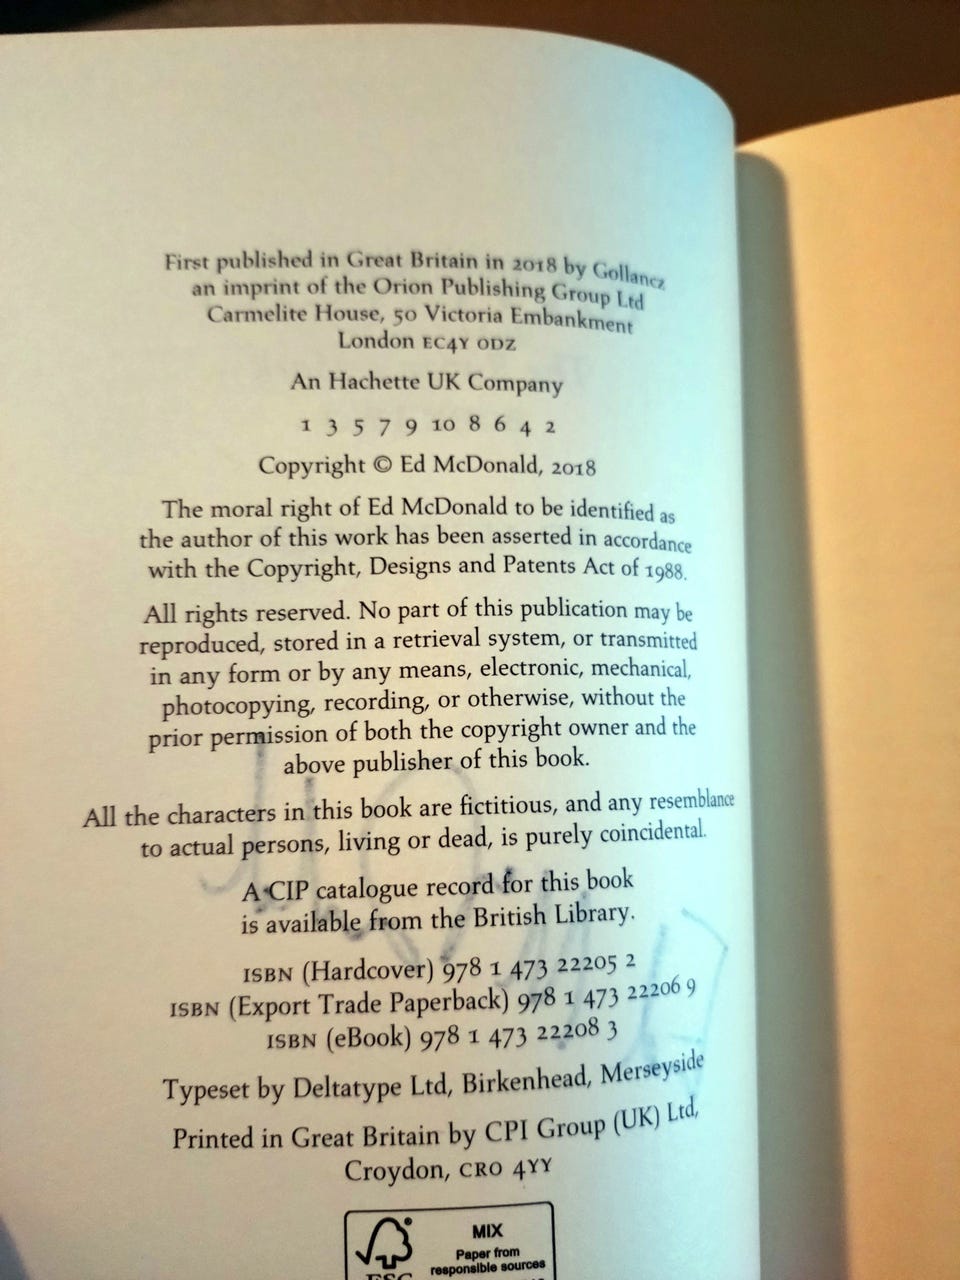 First published in Great Britain in 2018 by Gollancz
an imprint of the Orion Publishing Group Ltd
Carmelite House, 50 Victoria Embankment
London EC4Y 0DZ
An Hachette UK Company
1 3 5 7 9 10 8 6 4 2
Copyright © Ed McDonald, 2018
The moral right of Ed McDonald to be identified as
the author of this work has been asserted in accordance
with the Copyright, Designs and Patents Act of 1988.
All rights reserved. No part of this publication may be
reproduced, stored in a retrieval system, or transmitted
in any form or by any means, electronic, mechanical,
photocopying, recording, or otherwise, without the
prior permission of both the copyright owner and the
above publisher of this book.
All the characters in this book are fictitious, and any resemblance
to actual persons, living or dead, is purely coincidental.
A CIP catalogue record for this book
is available from the British Library.
ISBN (Hardcover) 978 1 473 22205 2
ISBN (Export Trade Paperback) 978 1 473 22206 9
ISBN (eBook) 978 1 473 22208 3
Typeset by Deltatype Ltd, Birkenhead, Merseyside
Printed in Great Britain by CPI Group (UK) Ltd,
Croydon, CR0 4YY
MIX
Paper from
responsible sources
FSC